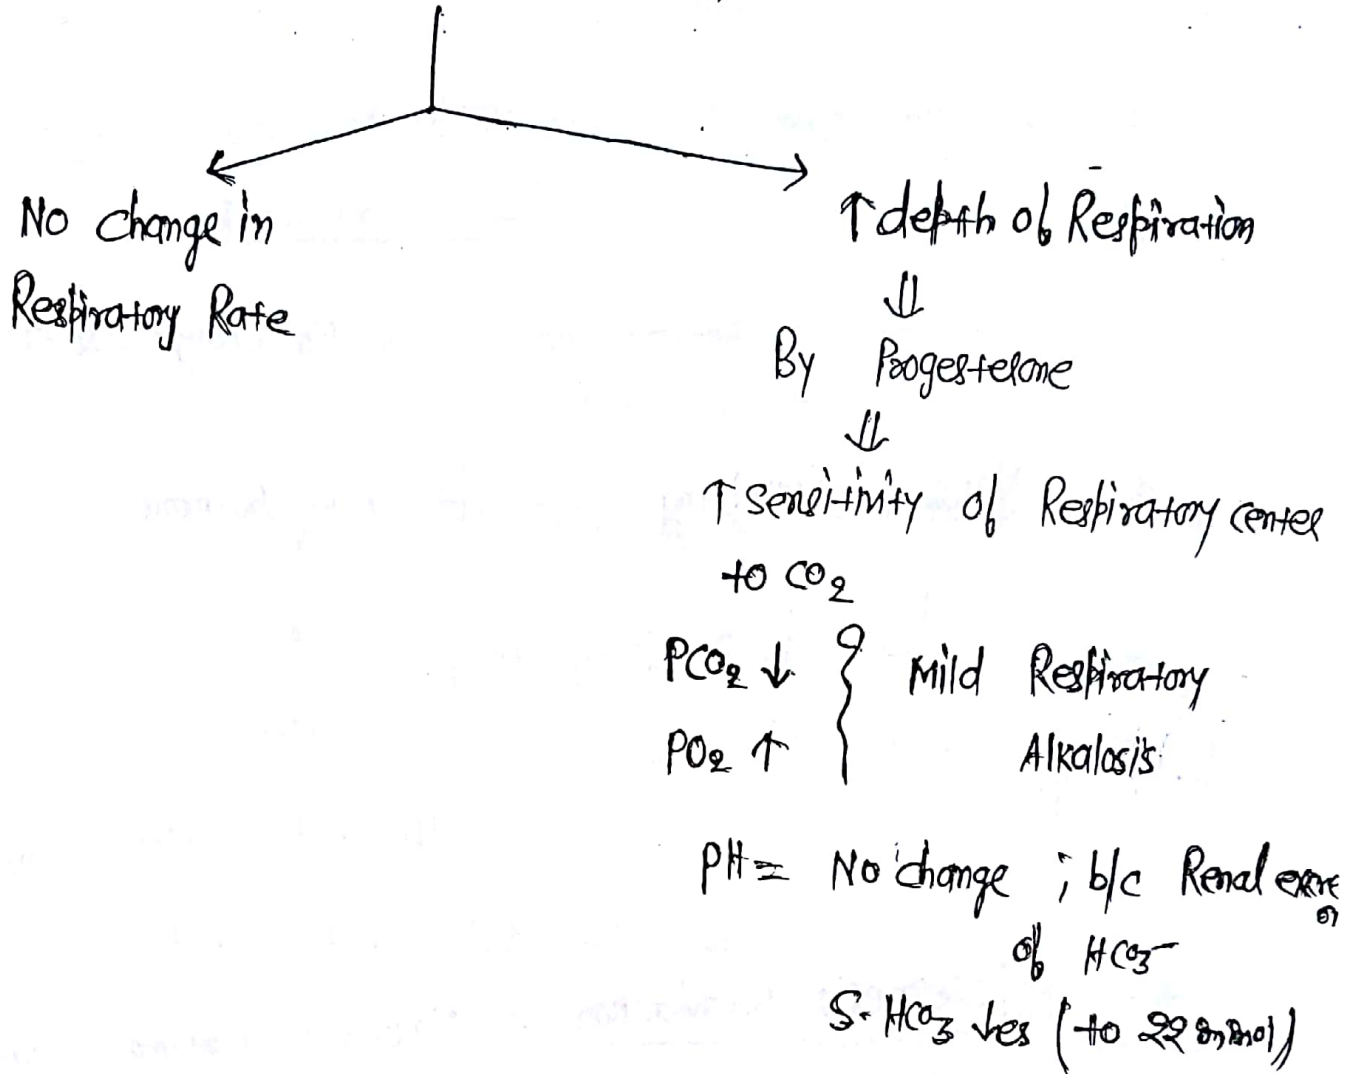 No change in
Respiratory Rate
↑ depth of Respiration
⇓
By Progesterone
⇓
↑ sensitivity of Respiratory center
to CO2
PCO2 ↓
PO2 ↑
Mild Respiratory
Alkalosis
PH = No change ; b/c Renal
of HCO3-
S. HCO3 ↓es (to 22 mmol)